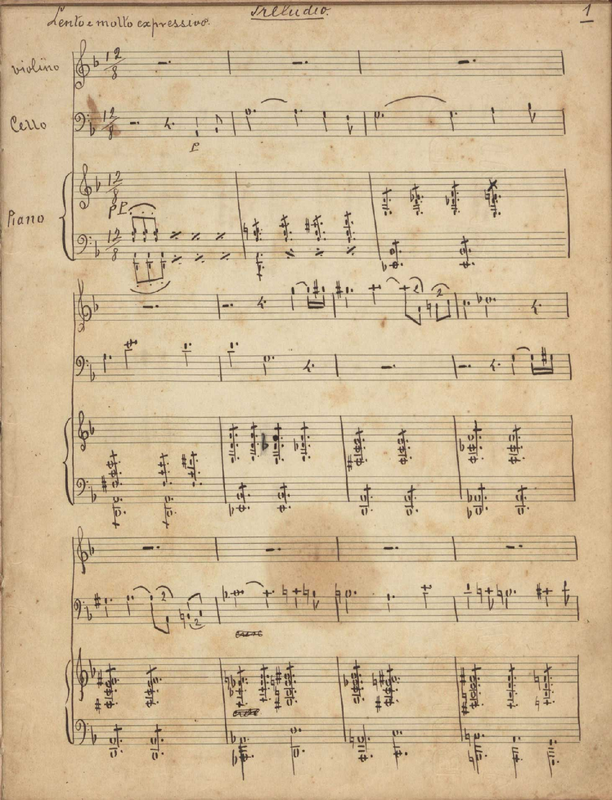 Preludio.
1
Lento e molto expressivo
violino
12
8
Cello
12
8
p
Piano
12
8
pp.
12
8
2
2
2
2